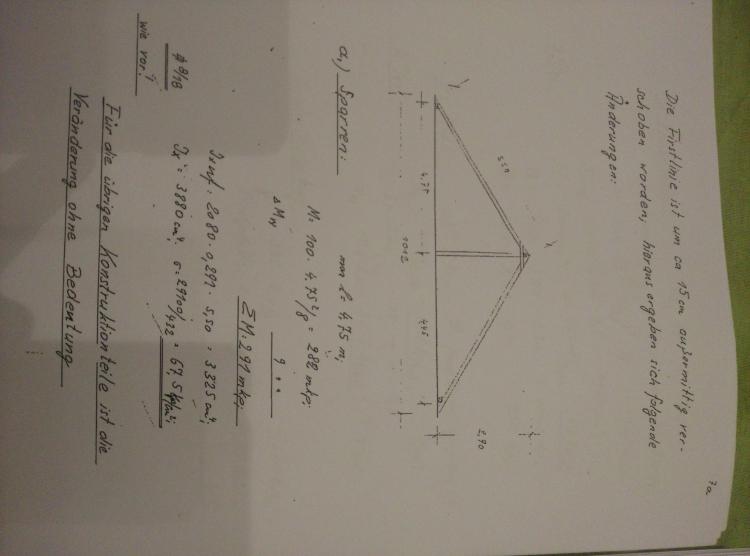 7a
Die Firstlinie ist um ca 15cm außermittig ver-
schoben worden, hieraus ergeben sich folgende
Änderungen:
5,50
4,75
4,45
2,90
a.) Sparren:
max l = 4,75 m;
M = 100 · 4,75²/8 = 282 mkp;
Δ MW
9 "
ΣM = 291 mkp;
Jx erf = 2080 · 0,291 · 5,50 = 3325 cm⁴;
Jx = 3880 cm⁴; σ = 29100/432 = 67,5 kp/cm²;
# 8/18
wie vor!
Für die übrigen Konstruktionteile ist die
Veränderung ohne Bedeutung